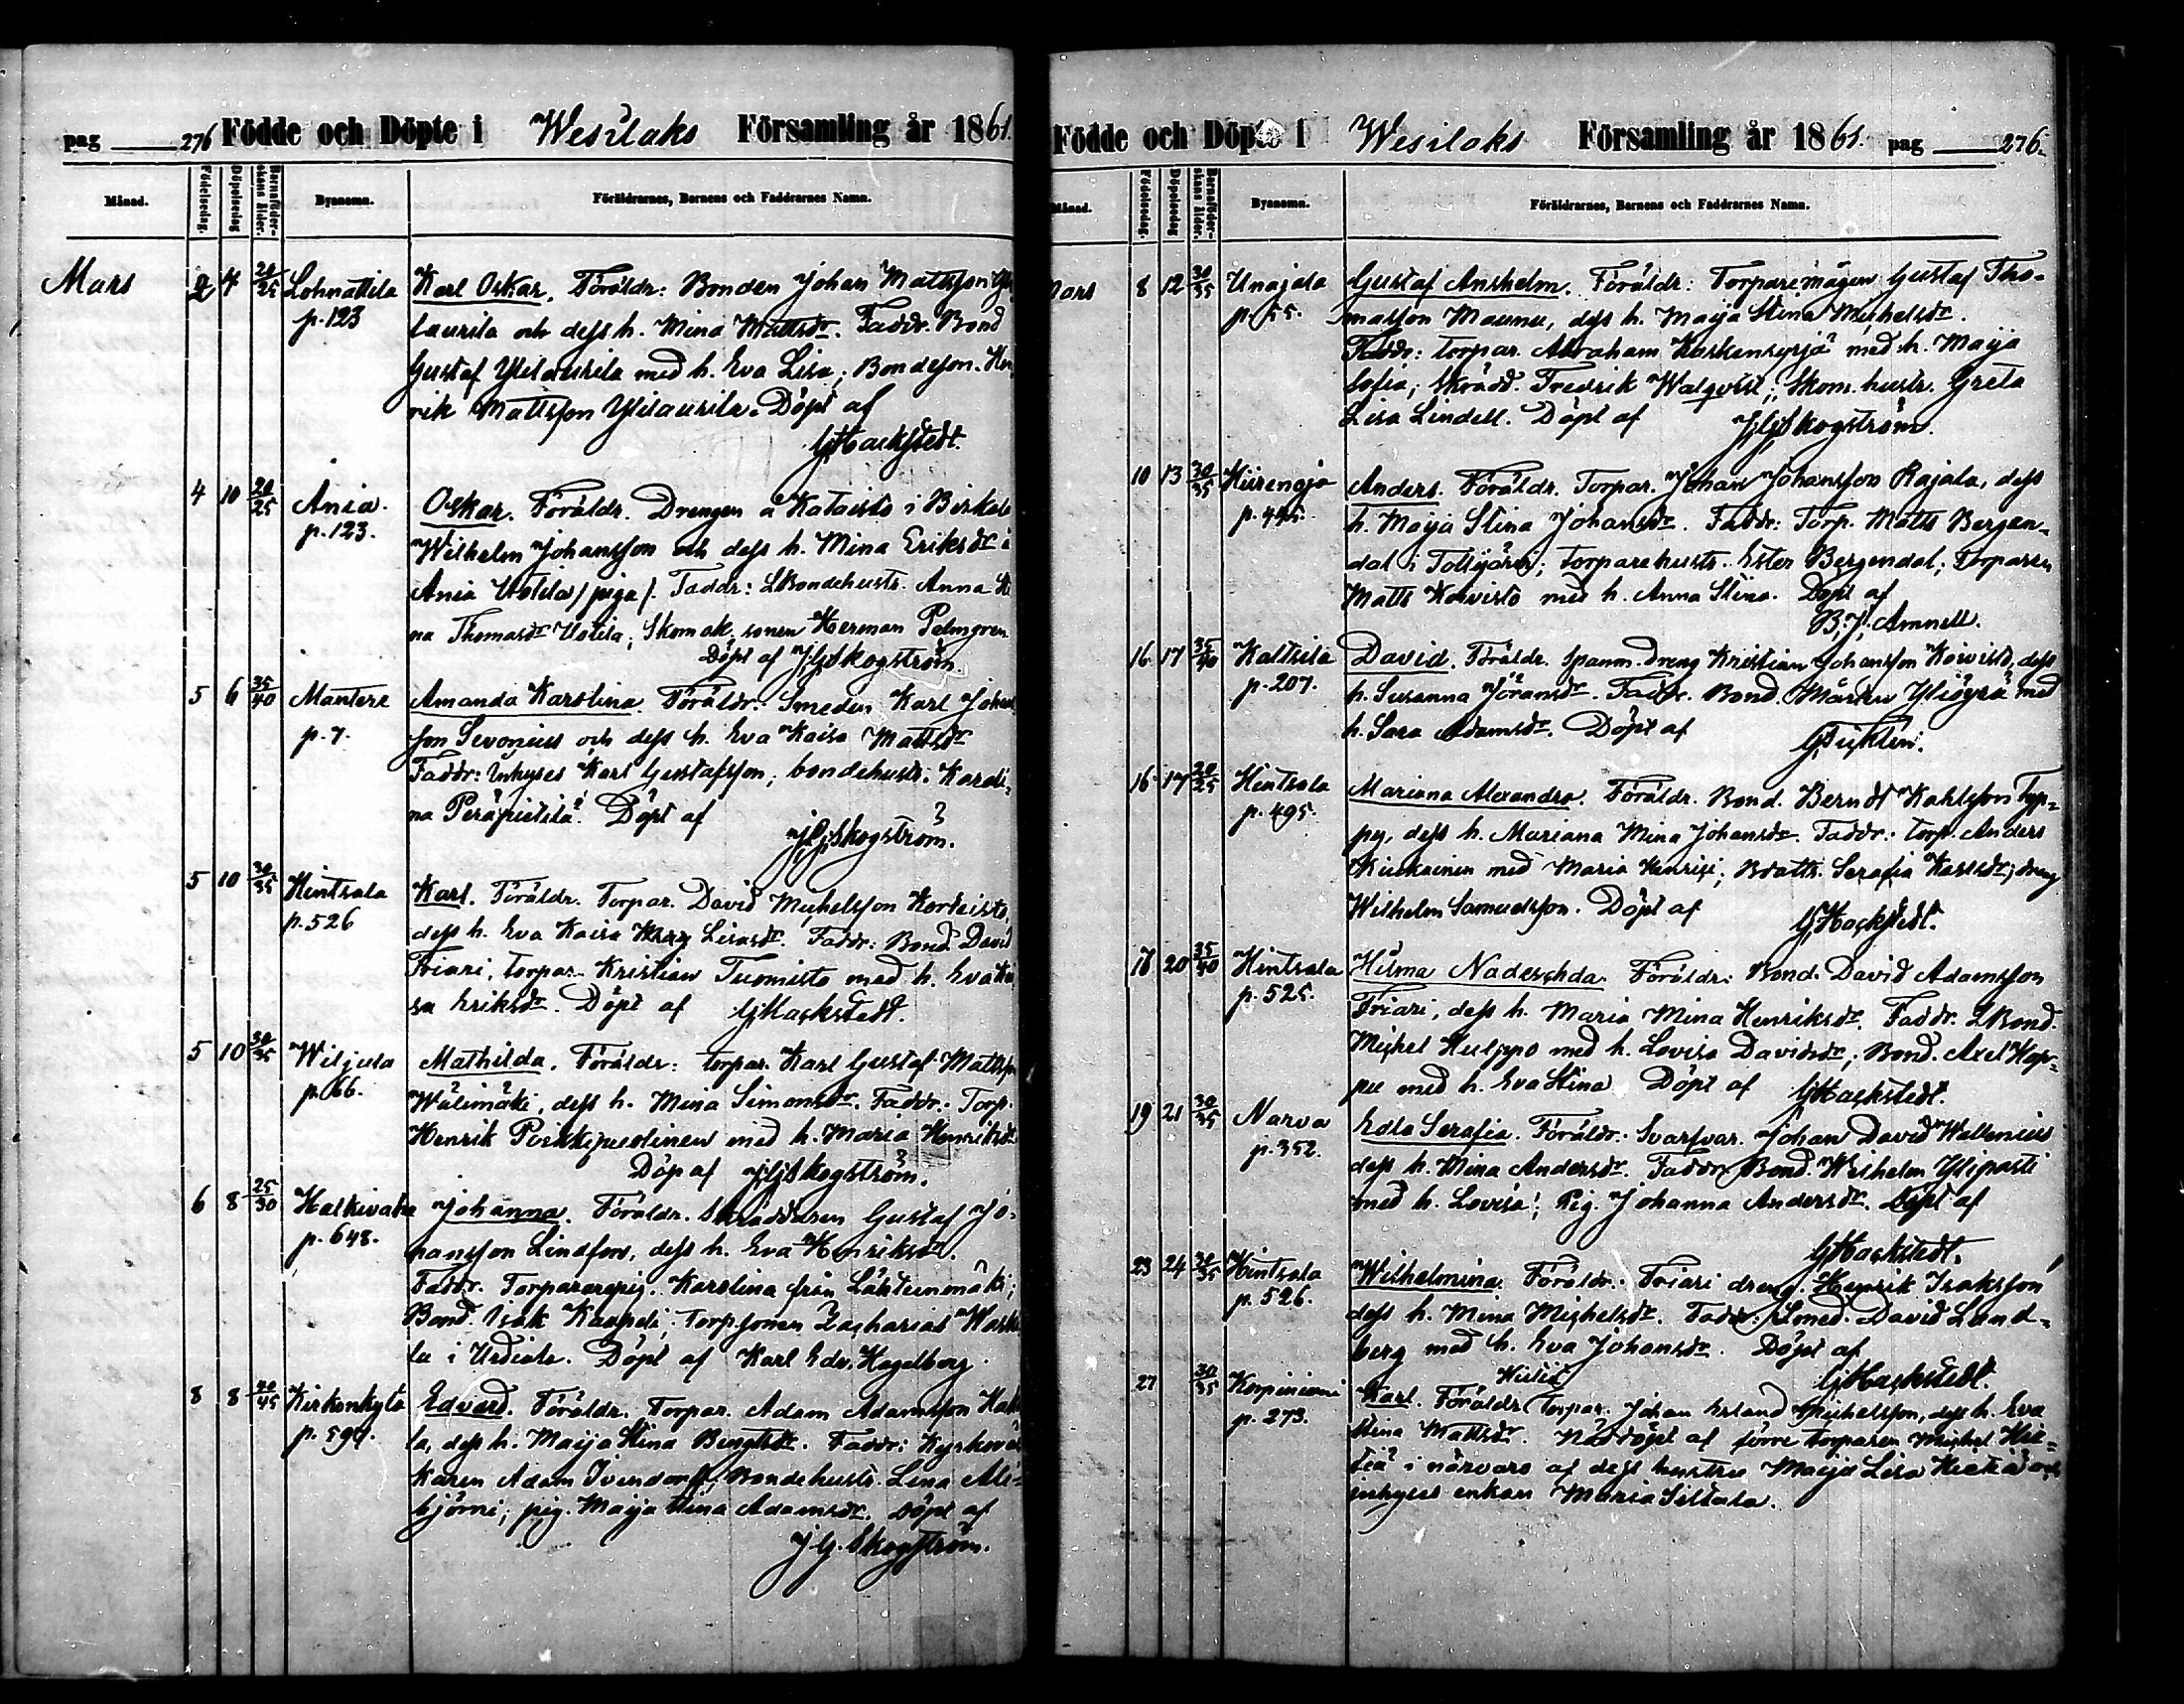 pag 276 Födde och Döpte i Wesilaks Församling år 1861.
Månad. Födelsedag. Döpelsedag Barnaföderskans ålder. Byanamn. Föräldrarnes, Barnens och Faddrarnes Namn.
Mars 2 4 20/25 Lohnattila Karl Oskar. Föräldr: Bonden Johan Mattsson
p. 123 laurila och dess h. Mina Mattsdr. Faddr. Bond
Gustaf Ylilaurila med h. Eva Lisa; Bondeson. Hen
rik Mattsson Ylilaurila. Döpt af
G Hackstedt.
4 10 20/25 Ania. Oskar. Föräldr. Drengen å Kataisto i Birkala
p. 123. Wilhelm Johansson och dess h. Mina Eriksdr i
Ania Uotila /piga/. Faddr: LBondehustr. Anna Sti
na Thomasdr Uotila; Skomak. sonen Herman Palmgren
Döpt af J G Skogström.
5 6 35/40 Mantere Amanda Karolina. Föräldr. Smeden Karl Johans
p. 7. son Sevonius och dess h. Eva Kaisa Mattsdr
Faddr: Inhyses Karl Gustafsson; bondehustr. Karoli-
na Peräpietilä. Döpt af
J G Skogström.
5 10 30/35 Hintsala Karl. Föräldr. Torpar. David Michelsson Korteisto,
p. 526 dess h. Eva Kaisa Lisasdr. Faddr: Bond. David
Friari, torpar. Kristian Tuomisto med h. Eva Kai
sa Eriksdr. Döpt af G Hackstedt.
5 10 30/35 Wiljula Mathilda. Föräldr: torpar. Karl Gustaf Mattsson
p. 66. Wälimäki, dess h. Mina Simonsdr. Faddr.: Torp.
Henrik Poikkipuolinen med h. Maria Henriksdr
Döp af J G Skogström.
6 8 25/30 Halkivaha Johanna. Föräldr. Skräddaren Gustaf Jo-
p. 648. hansson Lindfors, dess h. Eva Henriksdr.
Faddr. Torpararepig. Karolina från Lähteenmäki;
Bond. Isak Kaapeli; Torpsonen Zacharias
la i Urdiala. Döpt af Karl Edv. Hagelberg.
8 8 40/45 Kirkonkylä Edvard. Föräldr. Torpar. Adam Adamsson
p. 597. la, dess h. Maija Stina Bengtsdr. Faddr: Kyrkovak
karen Adam Ivendorff; Bondehustr. Lena Ali-
björni; pig. Maija Stina Adamsdr. Döpt af
J. G. Skogström.
Födde och Döpte i Wesilaks Församling år 1861. pag 276.
Månad. Födelsedag. Döpelsedag Barnaföderskans ålder. Byanamn. Föräldrarnes, Barnens och Faddrarnes Namn.
Mars 8 12 30/35 Unajala Gustaf Anshelm. Föräldr: Torparemågen Gustaf Tho-
p. 55. masson Maunu, dess h. Maija Stina Michelsdr.
Faddr: torpar. Abraham Koskensyrjä med h. Maija
Sofia; Skrädd. Fredrik Walqvist; Skom. hustr. Greta
Lisa Lindell. Döpt af J G Skogström.
10 13 30/35 Hiirenoja Anders. Föräldr. Torpar. Johan Johansson Rajala, dess
h. Maija Stina Johansdr. Faddr: Torp. Matts Bergen-
dal i Tottijärvi; Torparehustr. Ester Bergendal; Torparen
Matts Koivisto med h. Anna Stina. Döpt af
B. J. Amnell.
16 17 35/40 Kaltsila David. Föräldr. Spanm. dreng Kristian Johansson Koivisto, dess
p. 207. h. Susanna Jöransdr. Faddr. Bond. Mårten Yliöyrä med
h. Sara Adamsdr. Döpt af
16 17 20/25 Hintsala Mariana Alexandra. Föräldr. Bond. Berndt Karlsson Typ-
p. 495. py, dess h. Mariana Mina Johansdr. Faddr.: torp. Anders
Kiukainen med Maria Henrici; Bdattr. Serafia Karlsdr; dreng
Wilhelm Samuelsson. Döpt af G Hackstedt.
18 20 35/40 Hintsala Hilma Nadeschda. Föräldr: Bond. David Adamsson
p. 525. Friari, dess h. Maria Mina Henriksdr. Faddr. LBond.
Michel Hulppo med h. Lovisa Davidsdr.; Bond. Axel Hop-
pu med h. Eva Stina Döpt af G Hackstedt.
19 21 30/35 Narva Edla Serafia. Föräldr. Svarfvar. Johan David Wallenius
p. 352. dess h. Mina Andersdr. Faddr. Bond. Wilhelm Yliparti
med h. Lovisa; Pig. Johanna Andersdr. Döpt af
G Hackstedt.
23 24 30/35 Hintsala Wilhelmina. Föräldr.: Friari dreng. Henrik Isaksson
p. 526. dess h. Mina Michelsdr. Faddr: Smed. David Lund-
berg med h. Eva Johansdr. Döpt af
G Hackstedt.
27 30/35 Korpiniemi Karl. Föräldr. Torpar. Johan Erland Michelsson, dess h. Eva
p. 273. Stina Mattsdr. Nöddöpt af förre torparen Michel Hie-
i närvaro af dess hustru Maija Lisa och
inhyses enkan Maria Siltala.